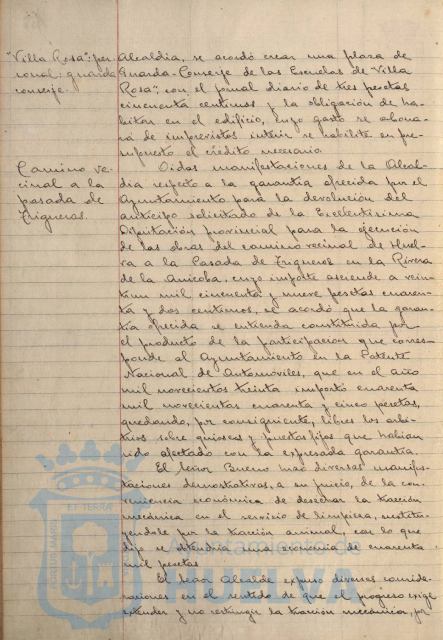 "Villa Rosa": per-
sonal: guarda
conserje.
Alcaldia, se acordó crear una plaza de
Guarda-Conserje de las Escuelas de "Villa
Rosa", con el jornal diario de tres pesetas
cincuenta centimos y la obligación de ha-
bitar en el edificio, cuyo gasto se abona-
rá de imprevistos interin se habilite en pre-
supuesto el crédito necesario.
Camino ve-
cinal a la
pasada de
Trigueros.
Oidas manifestaciones de la Alcal-
dia respecto a la garantia ofrecida por el
Ayuntamiento para la devolución del
anticipo solicitado de la Excelentisima
Diputación provincial para la ejecución
de las obras del camino vecinal de Huel-
va a la Pasada de Trigueros en la Rivera
de la Anicoba, cuyo importe asciende a vein-
tiun mil cincuenta y nueve pesetas cuaren-
ta y dos centimos, se acordó que la garan-
tia ofrecida se entienda constituida por
el producto de la participacion que corres-
ponde al Ayuntamiento en la Patente
Nacional de Automóviles, que en el año
mil novecientos treinta importó cuarenta
mil novecientas cuarenta y cinco pesetas,
quedando, por consiguiente, libres los arbi-
trios sobre quioscos y puestos fijos que habian
sido afectado con la expresada garantia.
El señor Bueno hizo diversas manifes-
taciones demostrativas, a su juicio, de la con-
veniencia económica de desechar la tracción
mecánica en el servicio de limpieza, sustitu-
yendole por la tracción animal, con lo que
dijo se obtendria una economia de cuarenta
mil pesetas.
El señor Alcalde expuso diversas conside-
raciones en el sentido de que el progreso exige
extender y no restringir la tracción mecánica, por
Ayuntamiento de
HUELVA